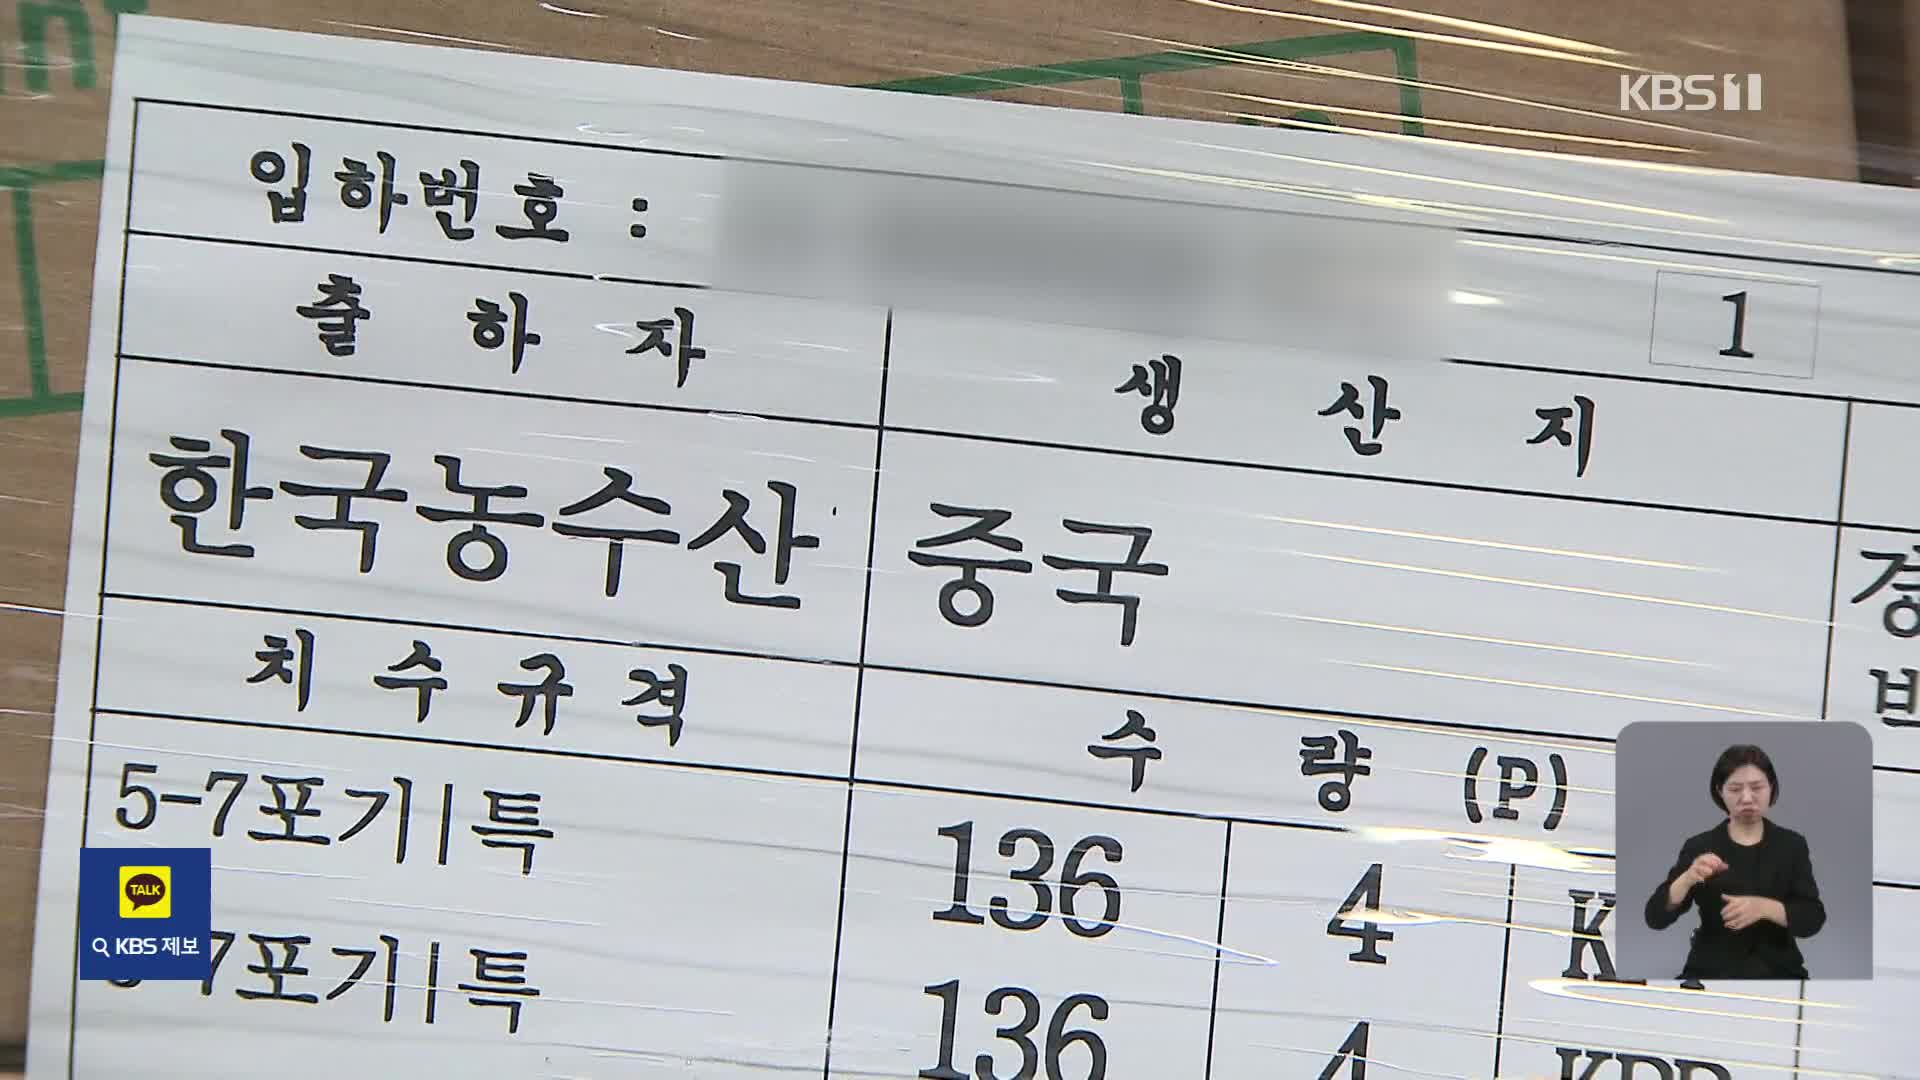 KBS 1
입하번호 :
1
출 하 자
생 산 지
한국농수산
중국
치 수 규 격
수 량 (P)
5-7포기|특
136
4
TALK
KBS 제보
7포기|특
136
4